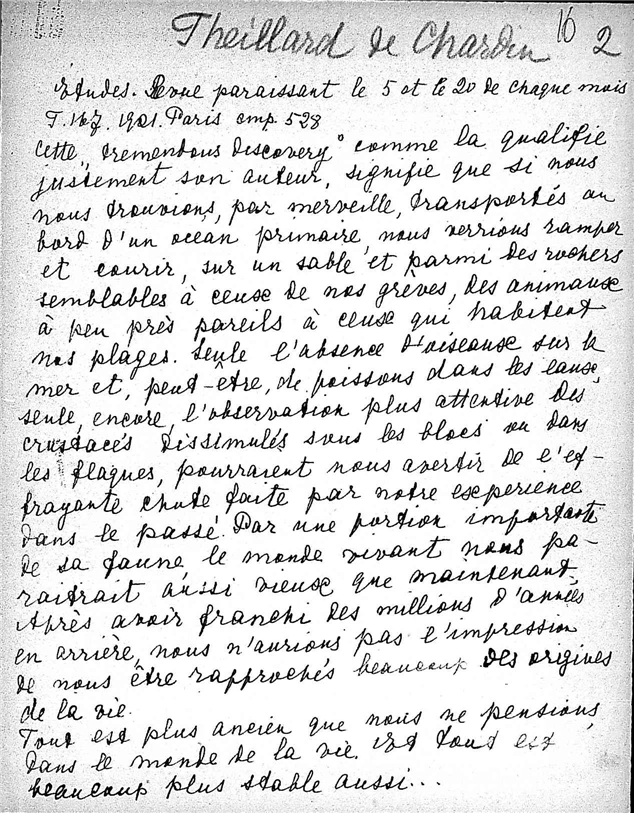 Theillard de Chardin 16 2
Etudes. Revue paraissant le 5 et le 20 de chaque mois
T. 167. 1921. Paris 528
Cette „tremendous discovery" comme la qualifie
justement son auteur, signifie que si nous
nous trouvions, par merveille, transportés au
bord d'un ocean primaire, nous verrions ramper
et courir, sur un sable et parmi des rochers
semblables à ceux de nos grèves, des animaux
à peu près pareils à ceux qui habitent
nos plages. Seule l'absence d'oiseaux sur la
mer et, peut-être, de poissons dans les eaux,
seule, encore, l'observation plus attentive des
crustacés dissimulés sous les blocs ou dans
les flaques, pourraient nous avertir de l'ef-
frayante chute faite par notre experience
dans le passé. Par une portion importante
de sa faune, le monde vivant nous pa-
raitrait aussi vieux que maintenant.
Après avoir franchi des millions d'années
en arrière, nous n'aurions pas l'impression
de nous être rapprochés beaucoup des origines
de la vie.
Tout est plus ancien que nous ne pensions,
dans le monde de la vie. Et tout est
beaucoup plus stable aussi...